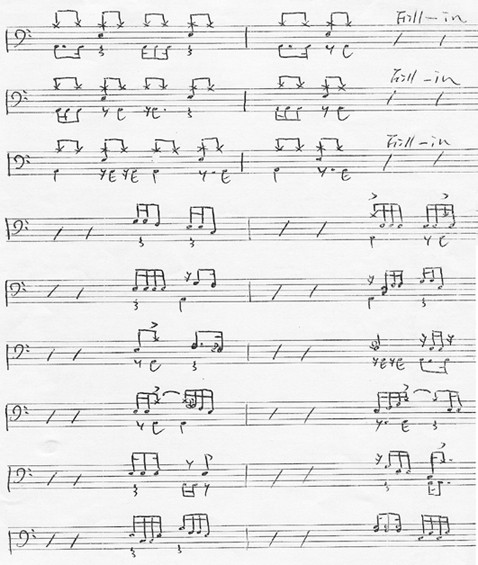 Fill-in
Fill-in
Fill-in